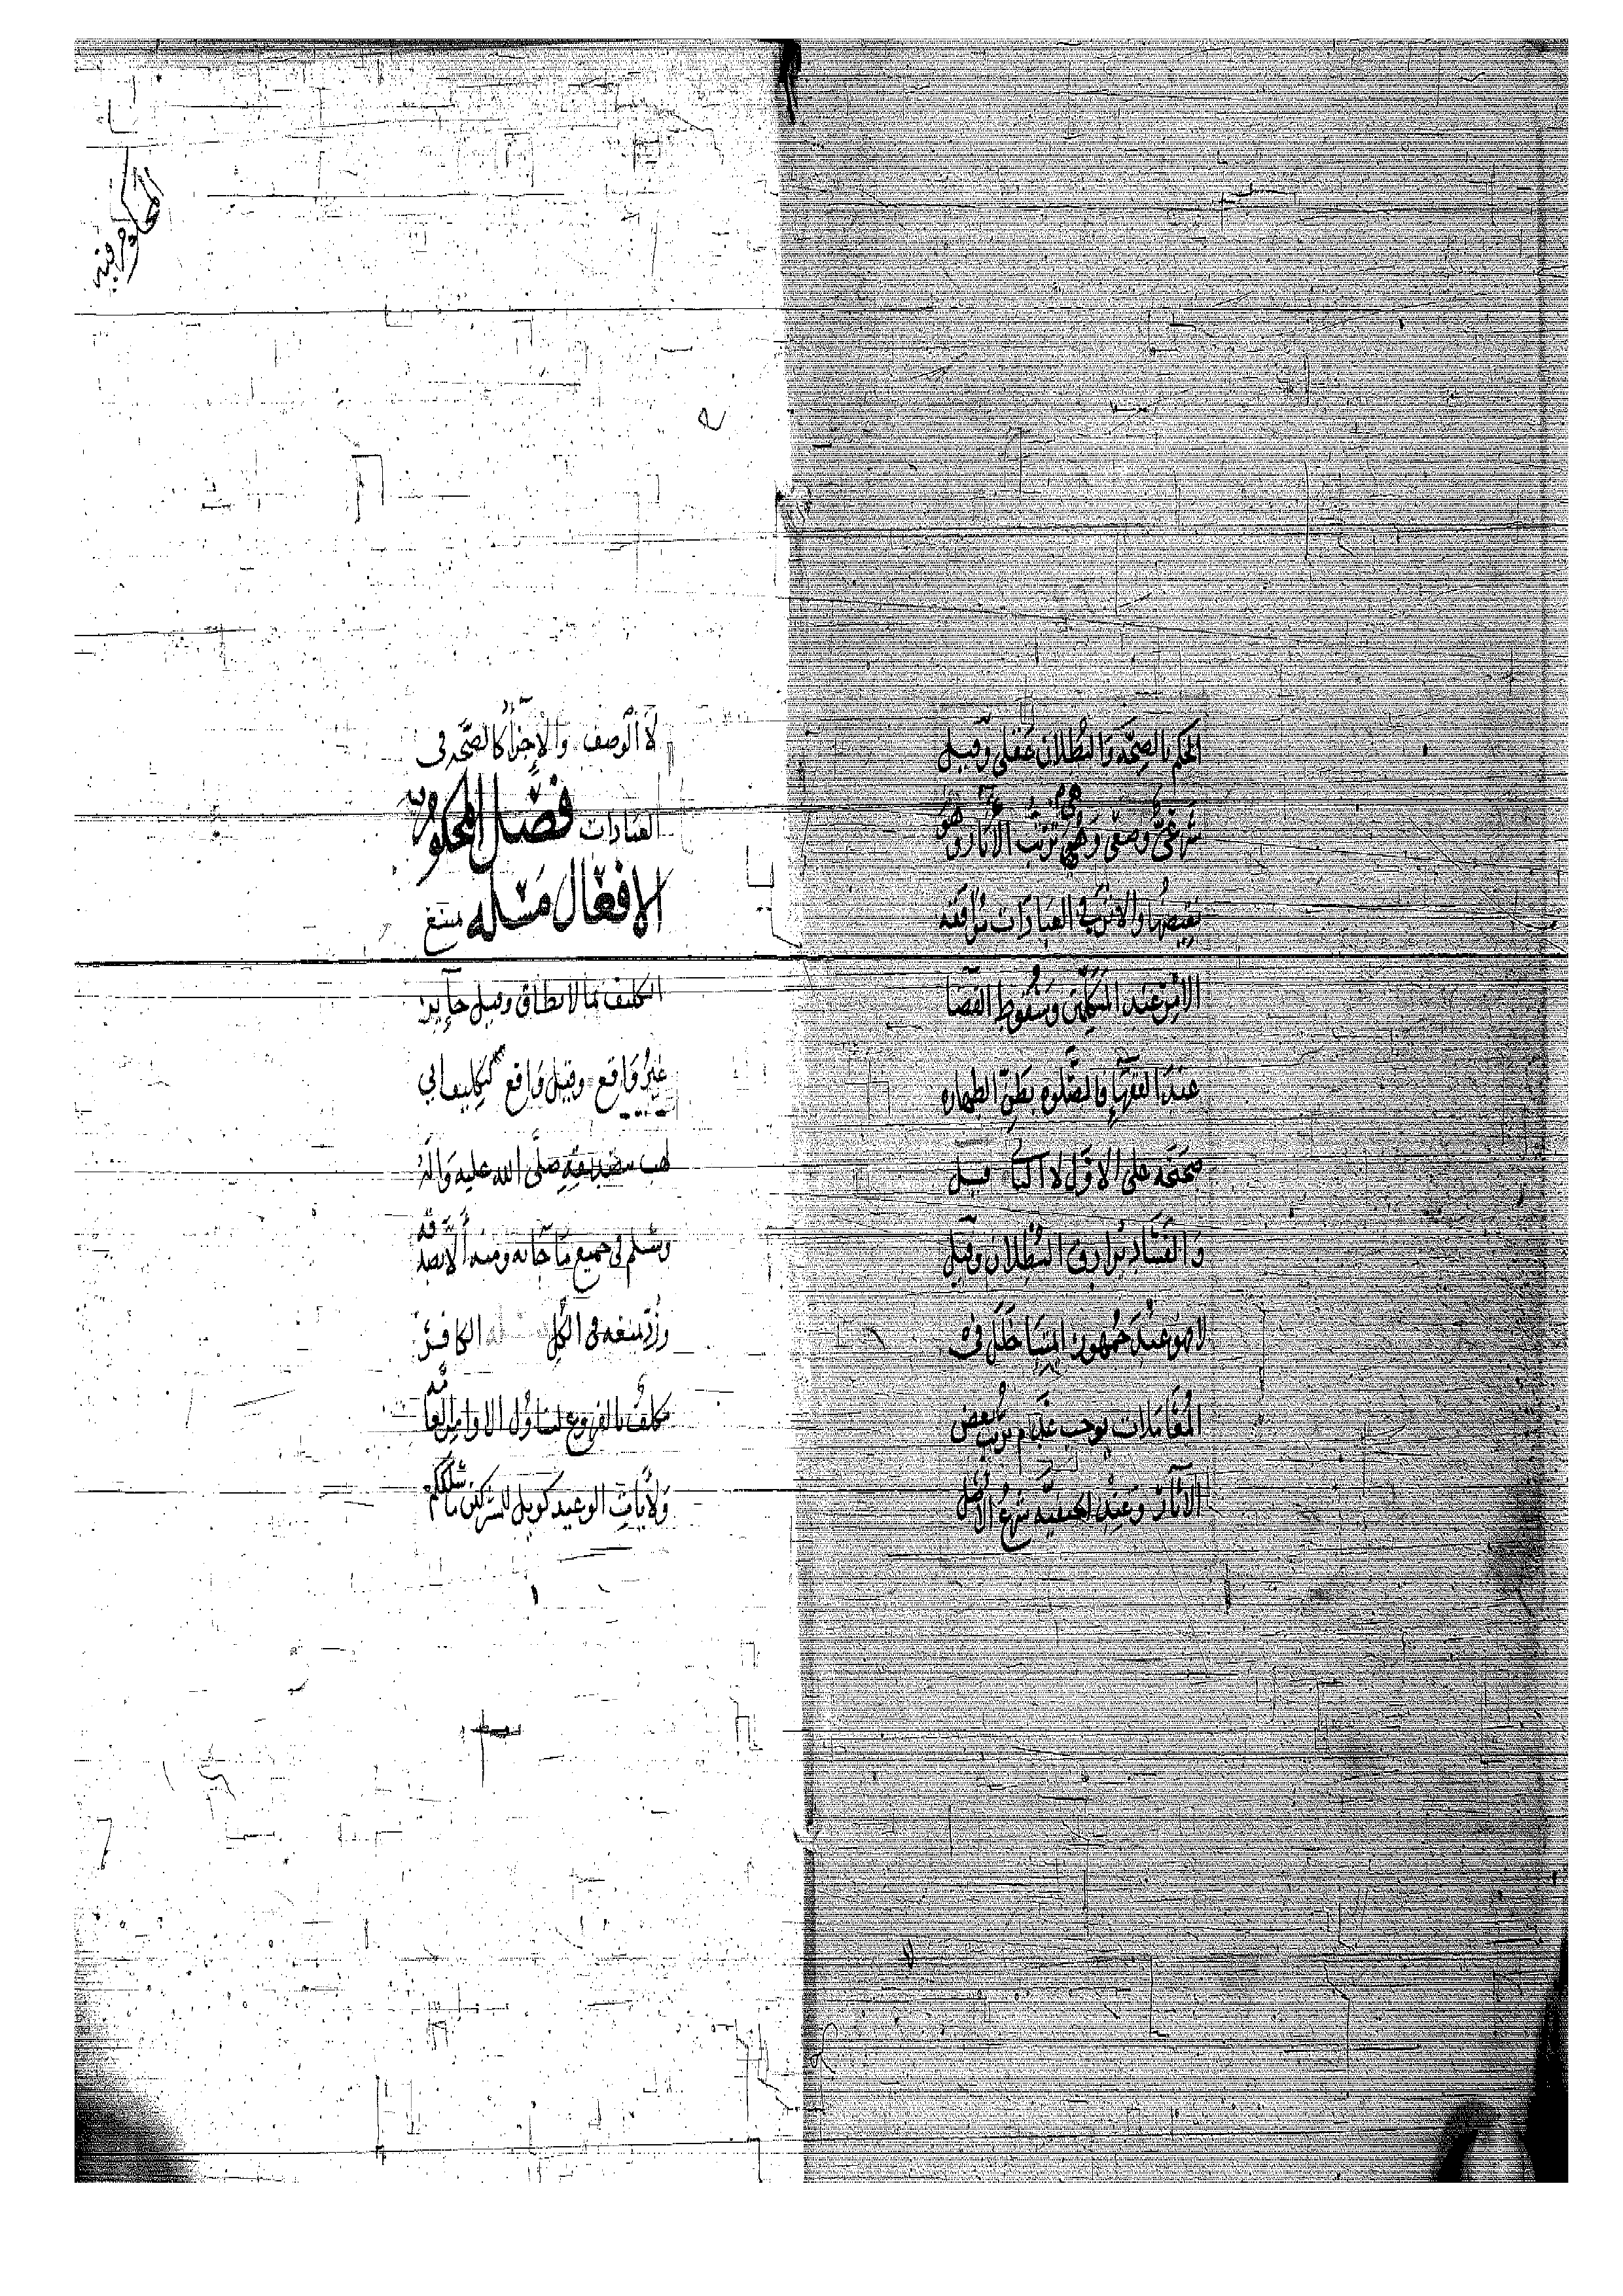 الحكم بالصحّه والبُطلان عَقلى وقيل
شرعىٌّ وضعىٌّ وهى ترتّب الاثار وهو
نقيضُها والاثر فى العبادات موافقه
الامر عند المتكلّمين وسُقوط القضآ
عندَ الفقهآءِ فالصّلوه بظنّ الطهاره
صحيحَه على الاوّل لا الثانى قيل
وَالفسَاد يُرادف البُطلان وقيل
لا وهو عندَ جُمهور المتنا خَلَل فى
المُعَامَلات يوجب عَدَم ترتب بعض
الآثار وَعِند الحنفيّه شرعُ الاصل
لا الوصف والإجزآءُ كالصّحّه فى
العبَادات فصَل المحكوم فيه
الافعَال مَسئله يمتنع
التكليف بما لا يطاق وقيل جآيز
غيرُ وَاقع وقيل وَاقع كتكليف ابى
لهب بتصديقه صلَّى الله عليه وَآله
وسَلم فى جميع مَا جآء به ومنه ألّا يصدّقه
ورُدّ بمنعه فى الكُل الكافر
مكلفٌ بالفروع لتناوُل الاوامر العامّه
وَلآيَات الوعيد كويل للمشركين ما سلككم
المحكوم فيه